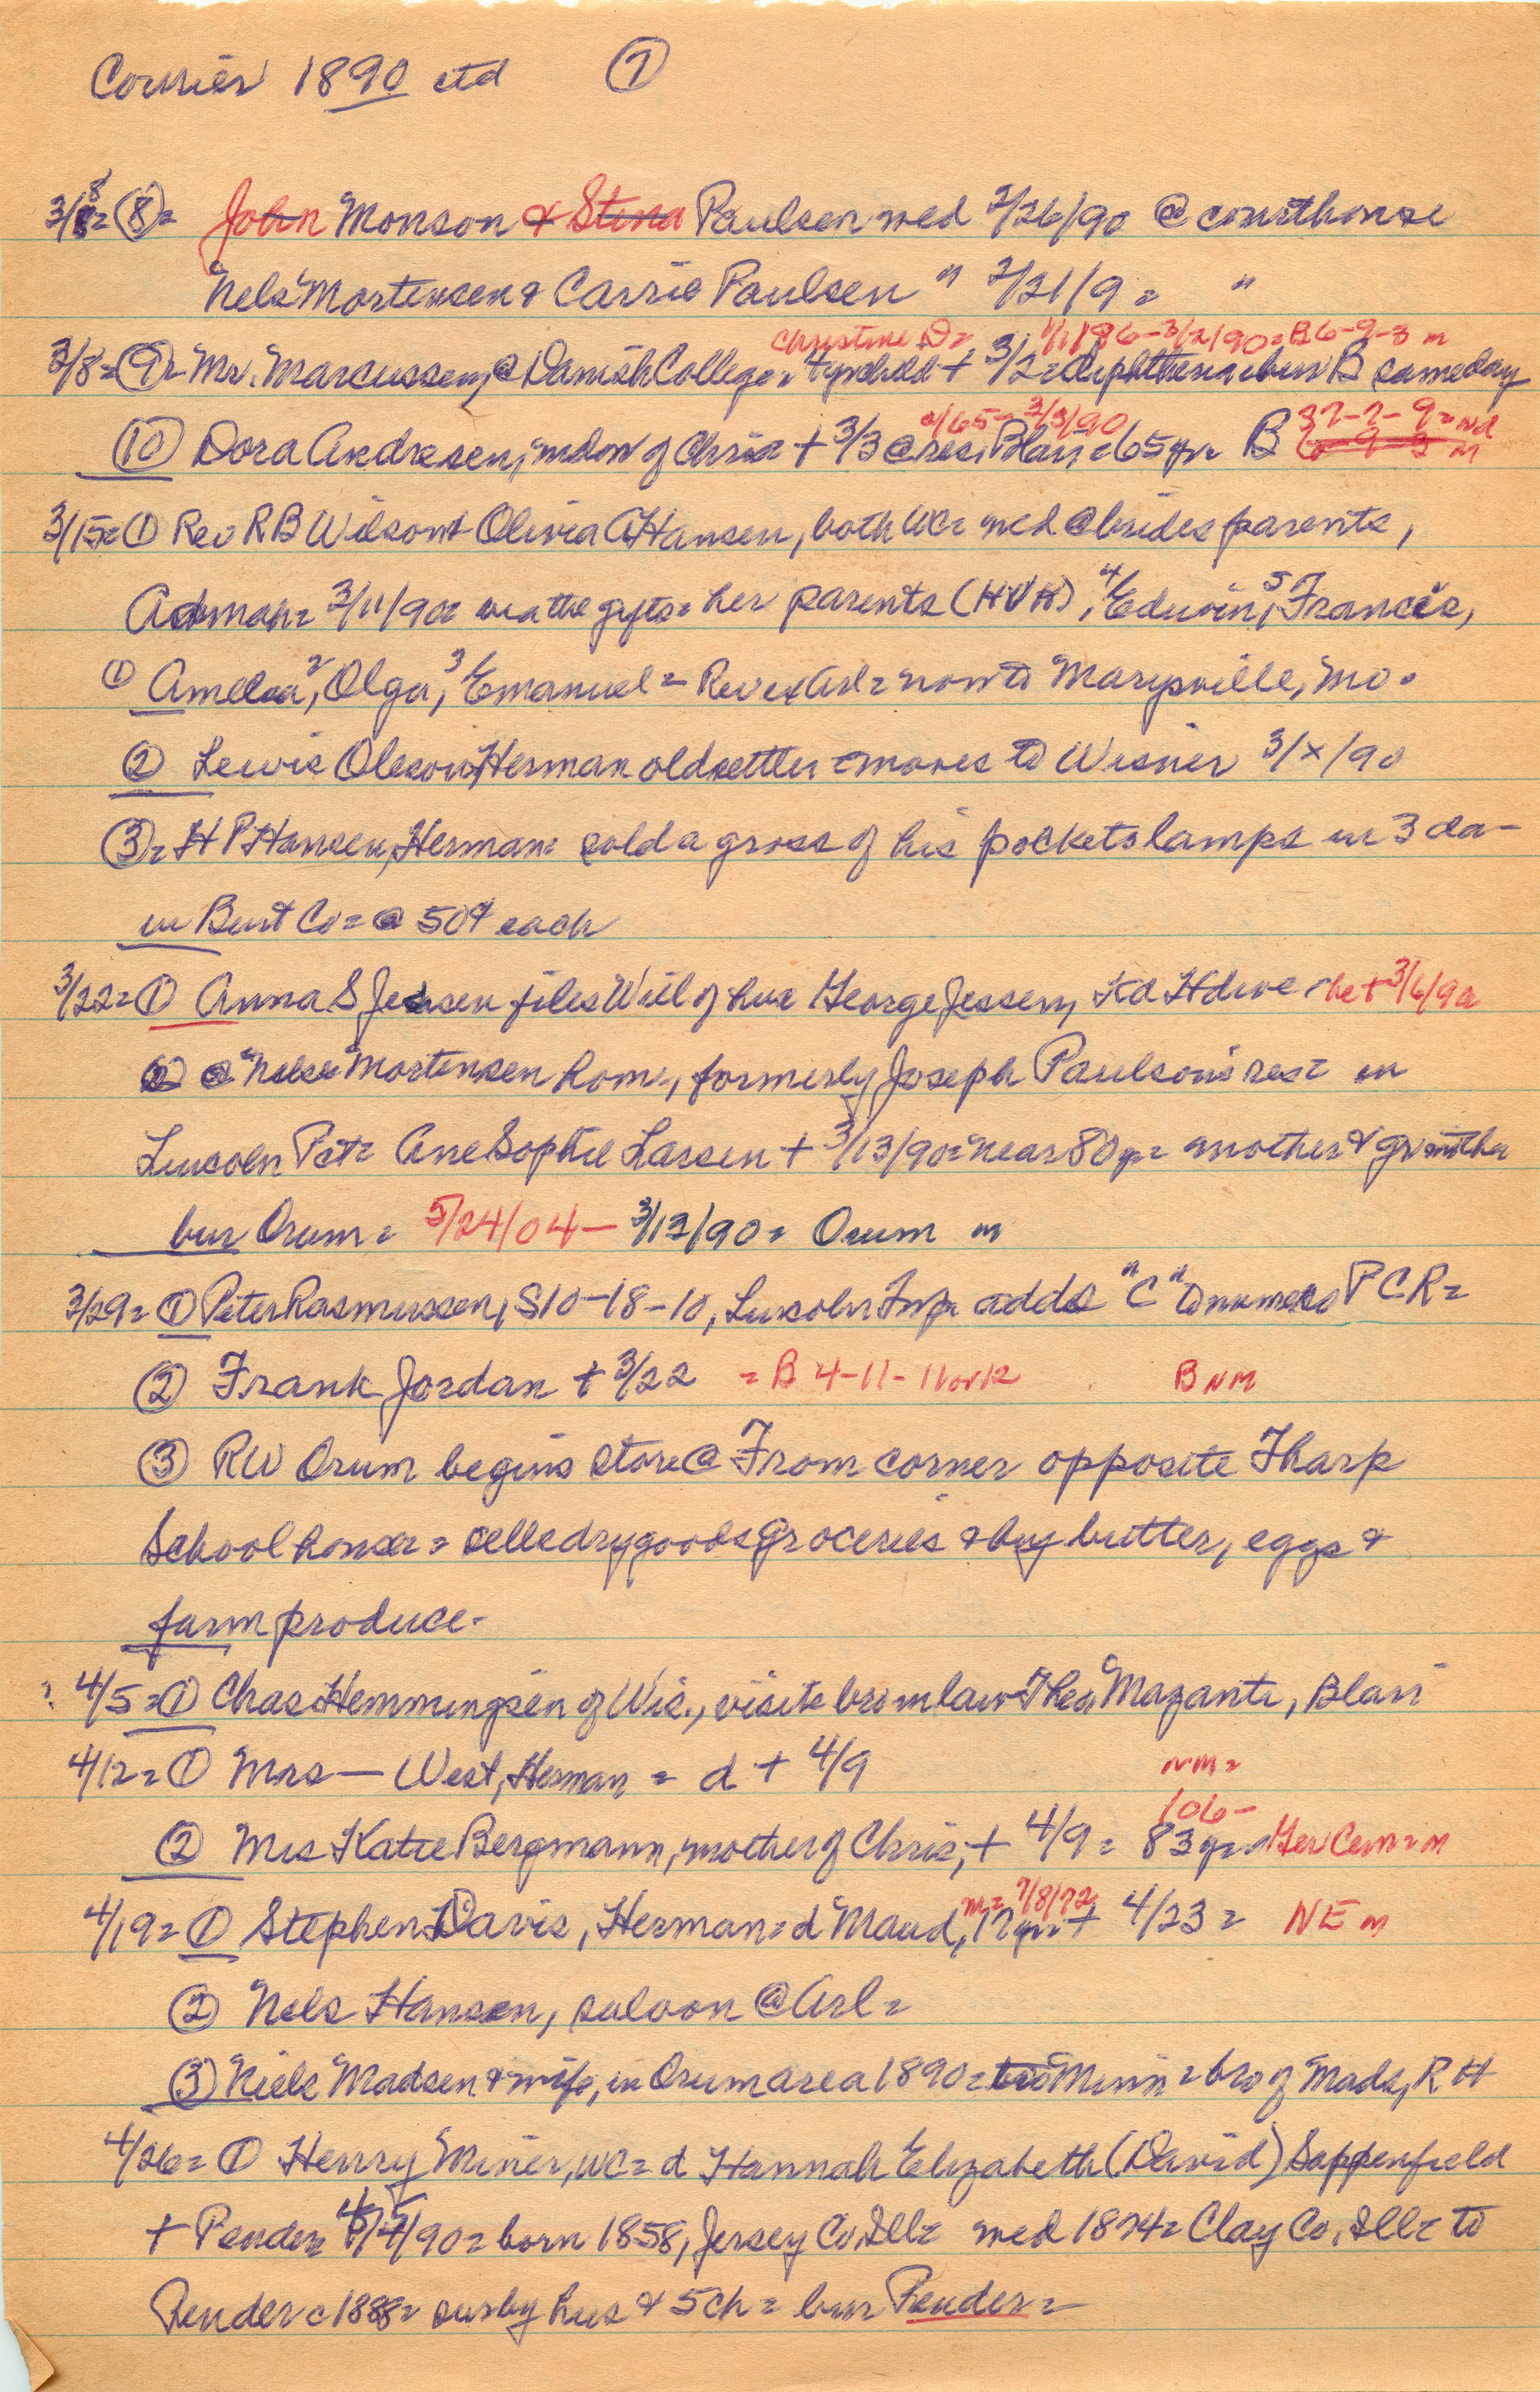 Courier 1890 ctd ⑦
3/8 = ⑧ = John Monson & Stena Paulsen wed 2/26/90 @ courthouse
Nels Mortensen & Carrie Paulsen " 2/21/9 = "
Christine D = 1/1/86-3/2/90 = B 6-9-3 m
3/8 = ⑨ = Mr. Marcussen, @ Danish College = 4yrold d + 3/2 = diphtheria = bur B same day
2/65 - 3/3/90 37-7-9 = nd
⑩ Dora Andresen, widow of Chris + 3/3 @ res. Blair = 65 yr = B 6-9-3 m
3/15 = ① Rev R B Wilson & Olivia A Hansen, both WC = wed @ brides parents,
Admah = 3/11/90 = gifts = her parents (HVH), 4 Edwin, 5 Francis,
① Amelia, 2 Olga, 3 Emanuel = Rev ex Arl = now to Marysville, Mo.
② Lewis Oleson, Herman old settler = moves to Wisner 3/x/90
③ = H P Hansen, Herman = sold a gross of his pockets lamps in 3 da -
in Burt Co = @ 50¢ each
3/22 = ① Anna S Jessen files Will of hus George Jessen, Kd Hdwe - he + 3/6/90
② @ Nels Mortensen home, formerly Joseph Paulson's res = in
Lincoln Pct = Ane Sophie Larsen + 3/13/90 = near 80 yr = mother & gr mother
bur Orum = 5/24/04 - 3/13/90 = Orum m
3/29 = ① Peter Rasmussen, S10-18-10, Lincoln Twp adds "C" to names P C R =
② Frank Jordan + 3/22 = B 4-11-11 or 12 B NM
③ RW Orum begins store @ From corner opposite Tharp
School house = sells drygoods groceries & buy butter, eggs &
farm produce -
? 4/5 = ① Chas Hemmingsen of Wis., visits bro in law Theo Mazanti, Blair
4/12 = ① Mrs — West, Herman = d + 4/9 NM =
106 -
② Mrs Katie Bergmann, mother of Chris, + 4/9 = 83 yr = Ger Cem = m
m = 7/8/72
4/19 = ① Stephen Davis, Herman = d Maud, 17 yr + 4/23 = NE m
② Nels Hansen, saloon @ Arl =
③ Niels Madsen & wife, in Orum area 1890 = to Minn = bro of Mads, R H
4/26 = ① Henry Miner, WC = d Hannah Elizabeth (David) Sappenfield
+ Pender 4/4/90 = born 1858, Jersey Co, Ill = wed 1874 = Clay Co, Ill = to
Pender c 1888 = surby hus & 5 ch = bur Pender =